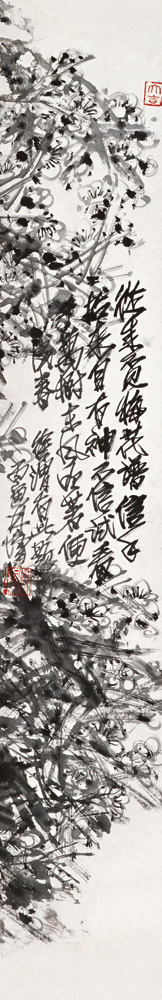 大吉
從來不見梅花譜信手
拈來自有神不信試看
千萬樹東風吹著便
成春　徐渭有此